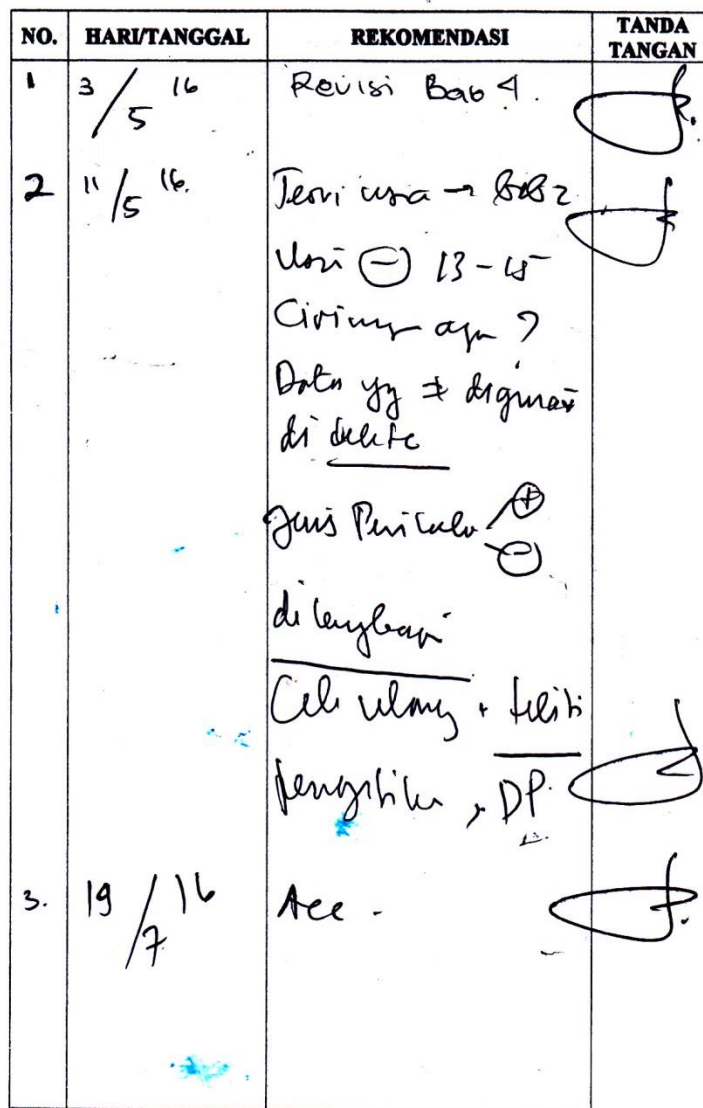 NO. HARI/TANGGAL REKOMENDASI TANDA TANGAN
1 3/5 16 Revisi Bab 4.
2 11/5 16. Teori usia → BAB 2
Usia ⊖ 13 - 15
Cirinya apa ?
Data yg ≠ digunakan
di delete
Jenis Perilaku ⊕
⊖
dilengkapi
Cek ulang + teliti
pengetikan, DP.
3. 19/7 16 Acc.